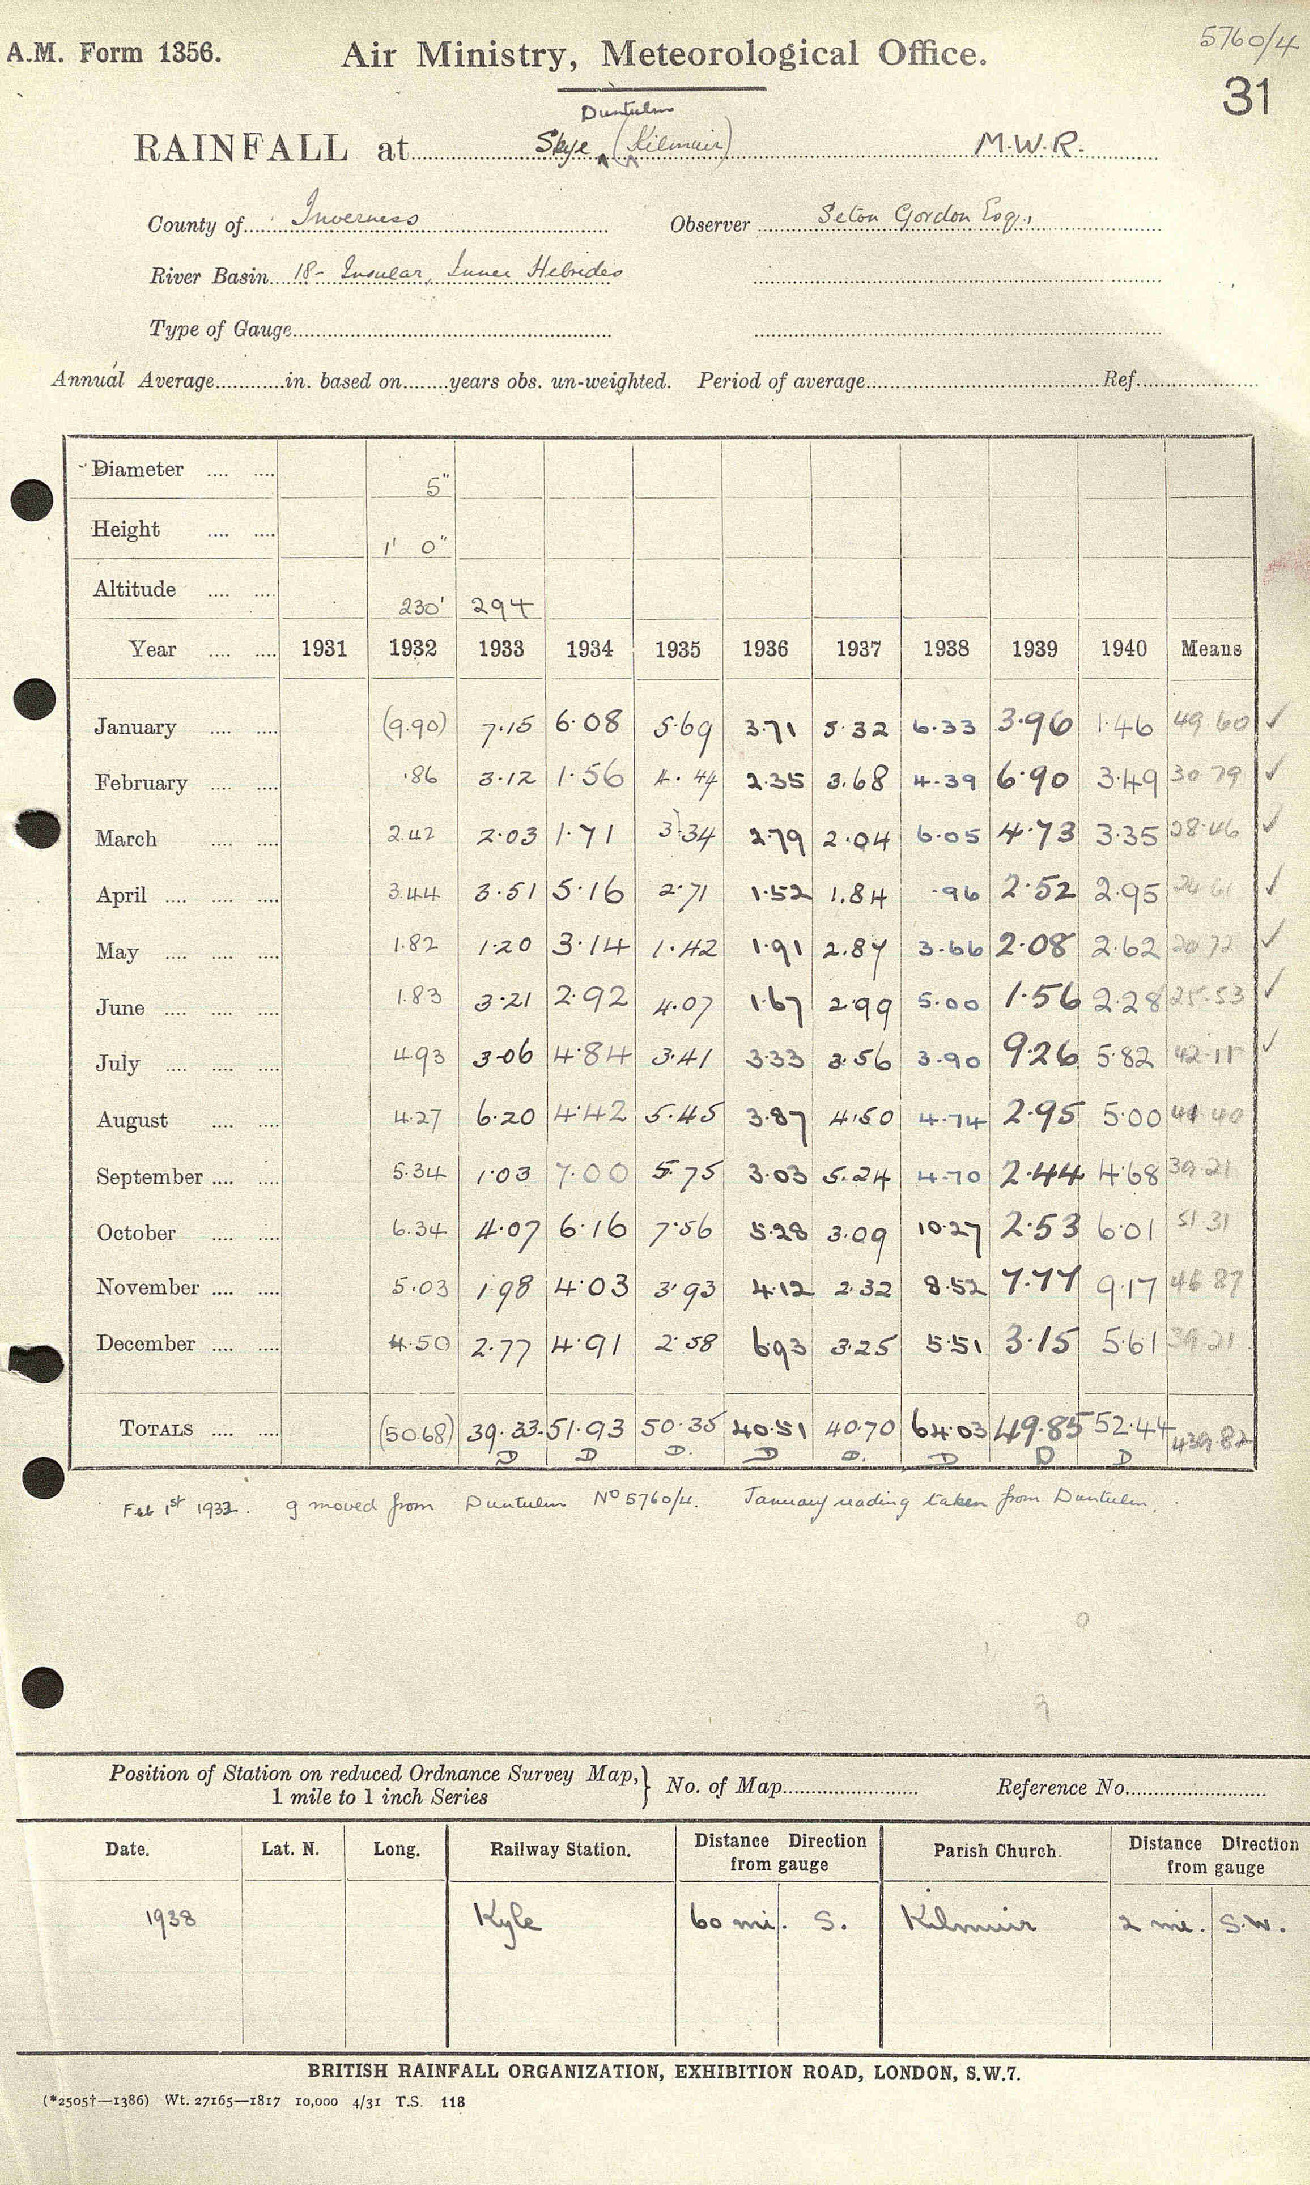 5760/4
A.M. Form 1356. Air Ministry, Meteorological Office.
31
Duntulm
RAINFALL at Skye (Kilmuir) M.W.R.
County of Inverness Observer Seton Gordon Esq.,
River Basin 18- Insular, Inner Hebrides
Type of Gauge
Annual Average in. based on years obs. un-weighted. Period of average Ref.
Diameter 5"
Height 1' 0"
Altitude 230' 294
Year 1931 1932 1933 1934 1935 1936 1937 1938 1939 1940 Means
January (9.90) 7.15 6.08 5.69 3.71 5.32 6.33 3.96 1.46 49.60 ✓
February .86 3.12 1.56 4.44 2.35 3.68 4.39 6.90 3.49 30.79 ✓
March 2.42 2.03 1.71 3.34 2.79 2.04 6.05 4.73 3.35 28.46 ✓
April 3.44 3.51 5.16 2.71 1.52 1.84 .96 2.52 2.95 24.61 ✓
May 1.82 1.20 3.14 1.42 1.91 2.87 3.66 2.08 2.62 20.72 ✓
June 1.83 3.21 2.92 4.07 1.67 2.99 5.00 1.56 2.28 25.53 ✓
July 4.93 3.06 4.84 3.41 3.33 3.56 3.90 9.26 5.82 42.11 ✓
August 4.27 6.20 4.42 5.45 3.87 4.50 4.74 2.95 5.00 41.40
September 5.34 1.03 7.00 5.75 3.03 5.24 4.70 2.44 4.68 39.21
October 6.34 4.07 6.16 7.56 5.28 3.09 10.27 2.53 6.01 51.31
November 5.03 1.98 4.03 3.93 4.12 2.32 8.52 7.77 9.17 46.87
December 4.50 2.77 4.91 2.58 6.93 3.25 5.51 3.15 5.61 39.21
TOTALS (50.68) 39.33 51.93 50.35 40.51 40.70 64.03 49.85 52.44 439.82
D D D. D D. D D D
Feb 1st 1932. g moved from Duntulm No 5760/4. January reading taken from Duntulm.
Position of Station on reduced Ordnance Survey Map, } No. of Map Reference No.
1 mile to 1 inch Series
Date. Lat. N. Long. Railway Station. Distance Direction from gauge Parish Church. Distance Direction from gauge
1938 Kyle 60 mi. S. Kilmuir 2 mi. S.W.
BRITISH RAINFALL ORGANIZATION, EXHIBITION ROAD, LONDON, S.W.7.
(*2505†—1386) Wt. 27165—1817 10,000 4/31 T.S. 118